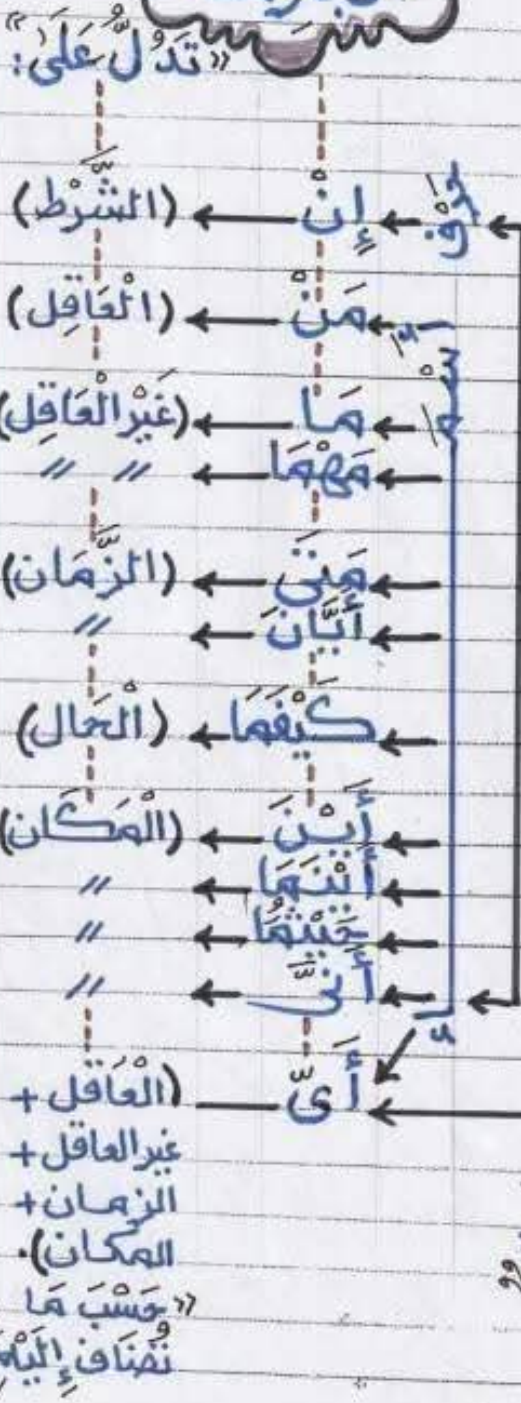 «تَدُلُّ عَلَى:»
حَرْف إِنْ (الشَّرْط)
مَنْ (الْعَاقِل)
اِسْم
مَا (غَيْر الْعَاقِل)
مَهْمَا // //
مَتَى (الزَّمَان)
أَيَّانَ //
كَيْفَمَا (الْحَال)
أَيْنَ (الْمَكَان)
أَيْنَمَا //
حَيْثُمَا //
أَنَّى //
أَيّ (الْعَاقل +
غير العاقل +
الزمان +
المكان).
«حَسْبَ مَا
تُضَاف إِلَيْهِ